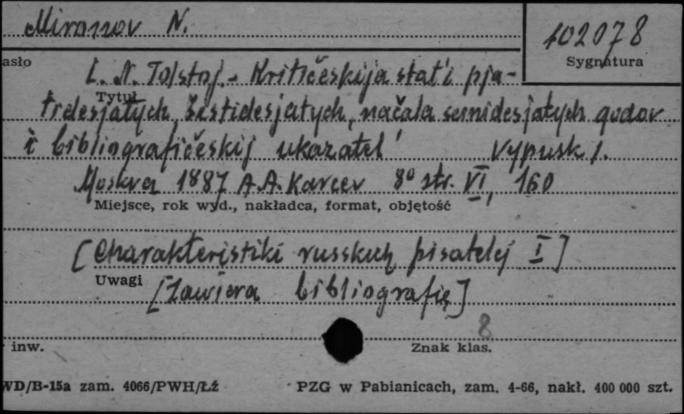 Mironov N.
102078
asło
Sygnatura
L. N. Tolstoj. - Kritičeskija stat'i pja-
Tytuł
tidesjatych, šestidesjatych, načala semidesjatych godov
i bibliografičeskij ukazatel' Vypusk 1.
Moskva 1887 A.A. Karcev 8° str. VI, 160
Miejsce, rok wyd., nakładca, format, objętość
[Charakteristiki russkich pisatelej I]
Uwagi
[Zawiera bibliografię]
8
inw.
Znak klas.
WD/B-15a zam. 4066/PWH/Łź
PZG w Pabianicach, zam. 4-66, nakł. 400 000 szt.